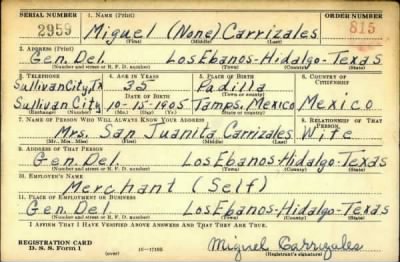 SERIAL NUMBER 1. NAME (Print) ORDER NUMBER
2959 Miguel (None) Carrizales 815
(First) (Middle) (Last)
2. ADDRESS (Print)
Gen. Del. Los Ebanos-Hidalgo-Texas
(Number and street or R. F. D. number) (Town) (County) (State)
3. TELEPHONE 4. AGE IN YEARS 5. PLACE OF BIRTH 6. COUNTRY OF CITIZENSHIP
Sullivan City, Tx 35 Padilla
(Town or county)
Sullivan City 10-15-1905 Tamps, Mexico Mexico
7. NAME OF PERSON WHO WILL ALWAYS KNOW YOUR ADDRESS 8. RELATIONSHIP OF THAT PERSON
Mrs. San Juanita Carrizales Wife
(Mr., Mrs., Miss) (First) (Middle) (Last)
9. ADDRESS OF THAT PERSON
Gen. Del. Los Ebanos-Hidalgo-Texas
(Number and street or R. F. D. number) (Town) (County) (State)
10. EMPLOYER'S NAME
Merchant (Self)
11. PLACE OF EMPLOYMENT OR BUSINESS
Gen. Del. Los Ebanos-Hidalgo-Texas
(Number and street or R. F. D. number) (Town) (County) (State)
I AFFIRM THAT I HAVE VERIFIED ABOVE ANSWERS AND THAT THEY ARE TRUE.
REGISTRATION CARD
D. S. S. Form 1 Miguel Carrizales
(over) (Registrant's signature)